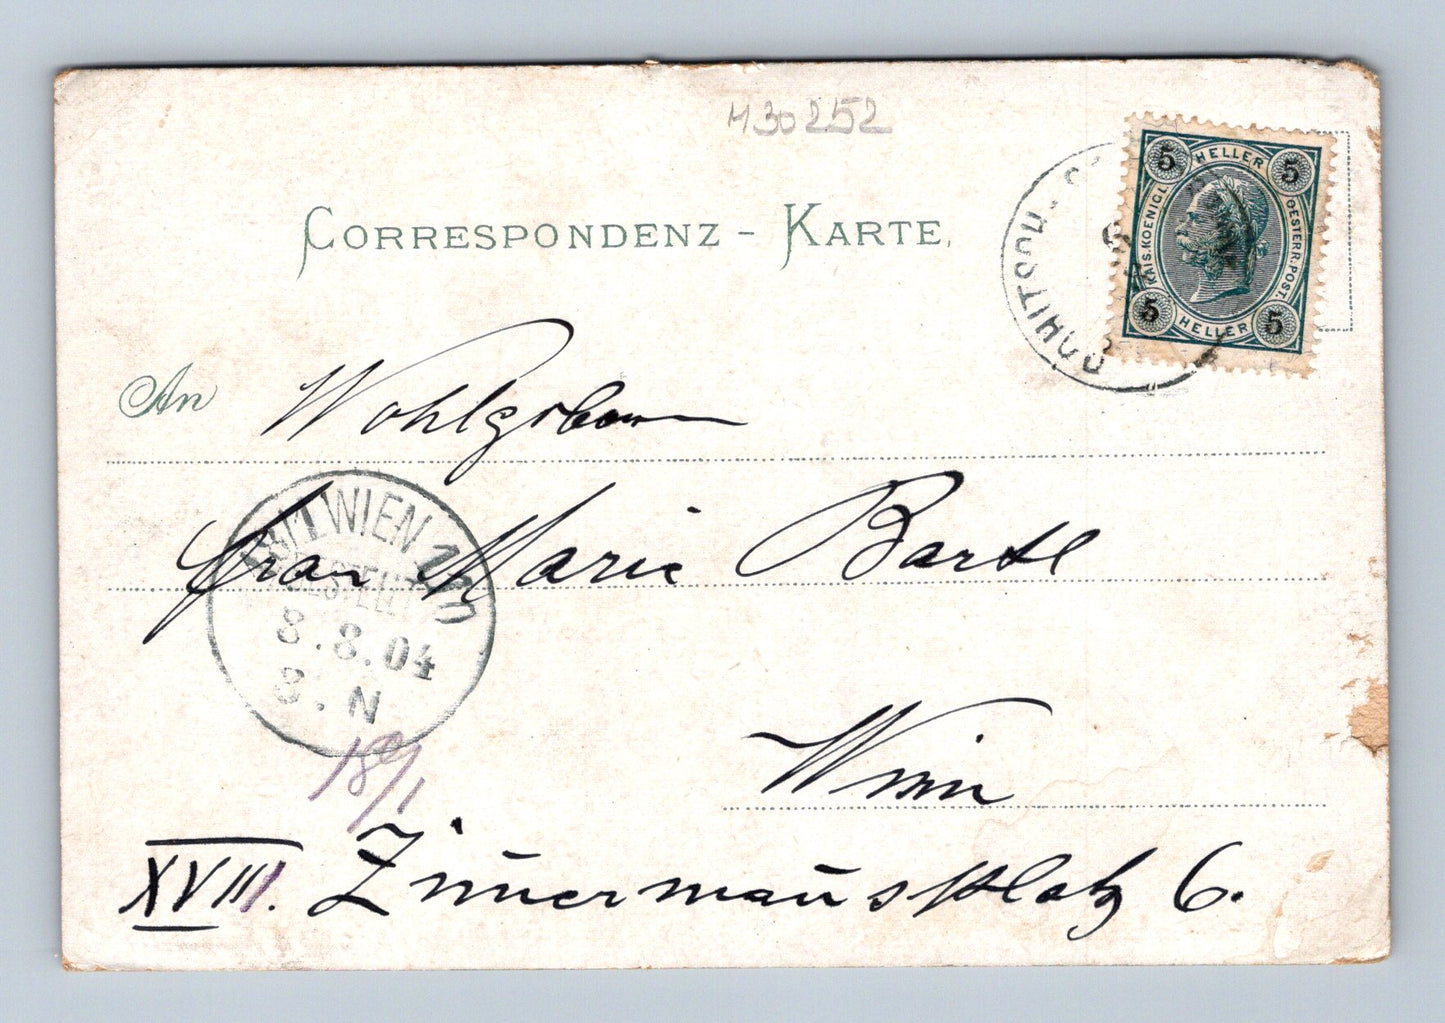 M30252
CORRESPONDENZ - KARTE.
5 HELLER 5
KAIS. KOENIGL. OESTERR. POST.
5 HELLER 5
ROHITSCH
An Wohlgeboren
Frau Marie Bartl
WIEN
BESTELLT
8.8.04
8.N
Wien
18/1
XVIII. Zim̄erman̄splatz 6.